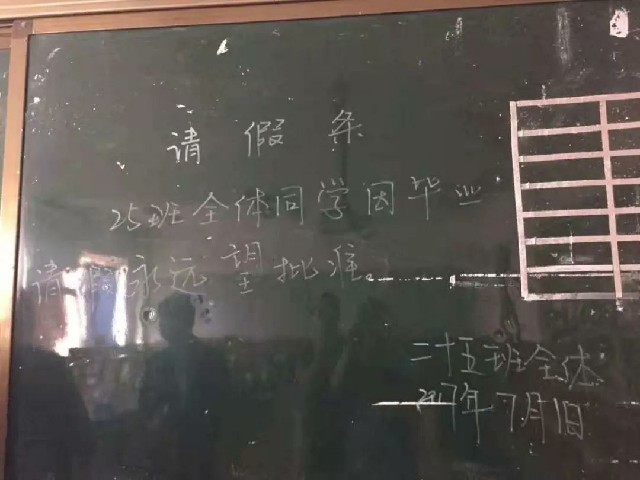 请假条
25班全体同学因毕业
请假永远望批准。
二十五班全体
2017年7月1日